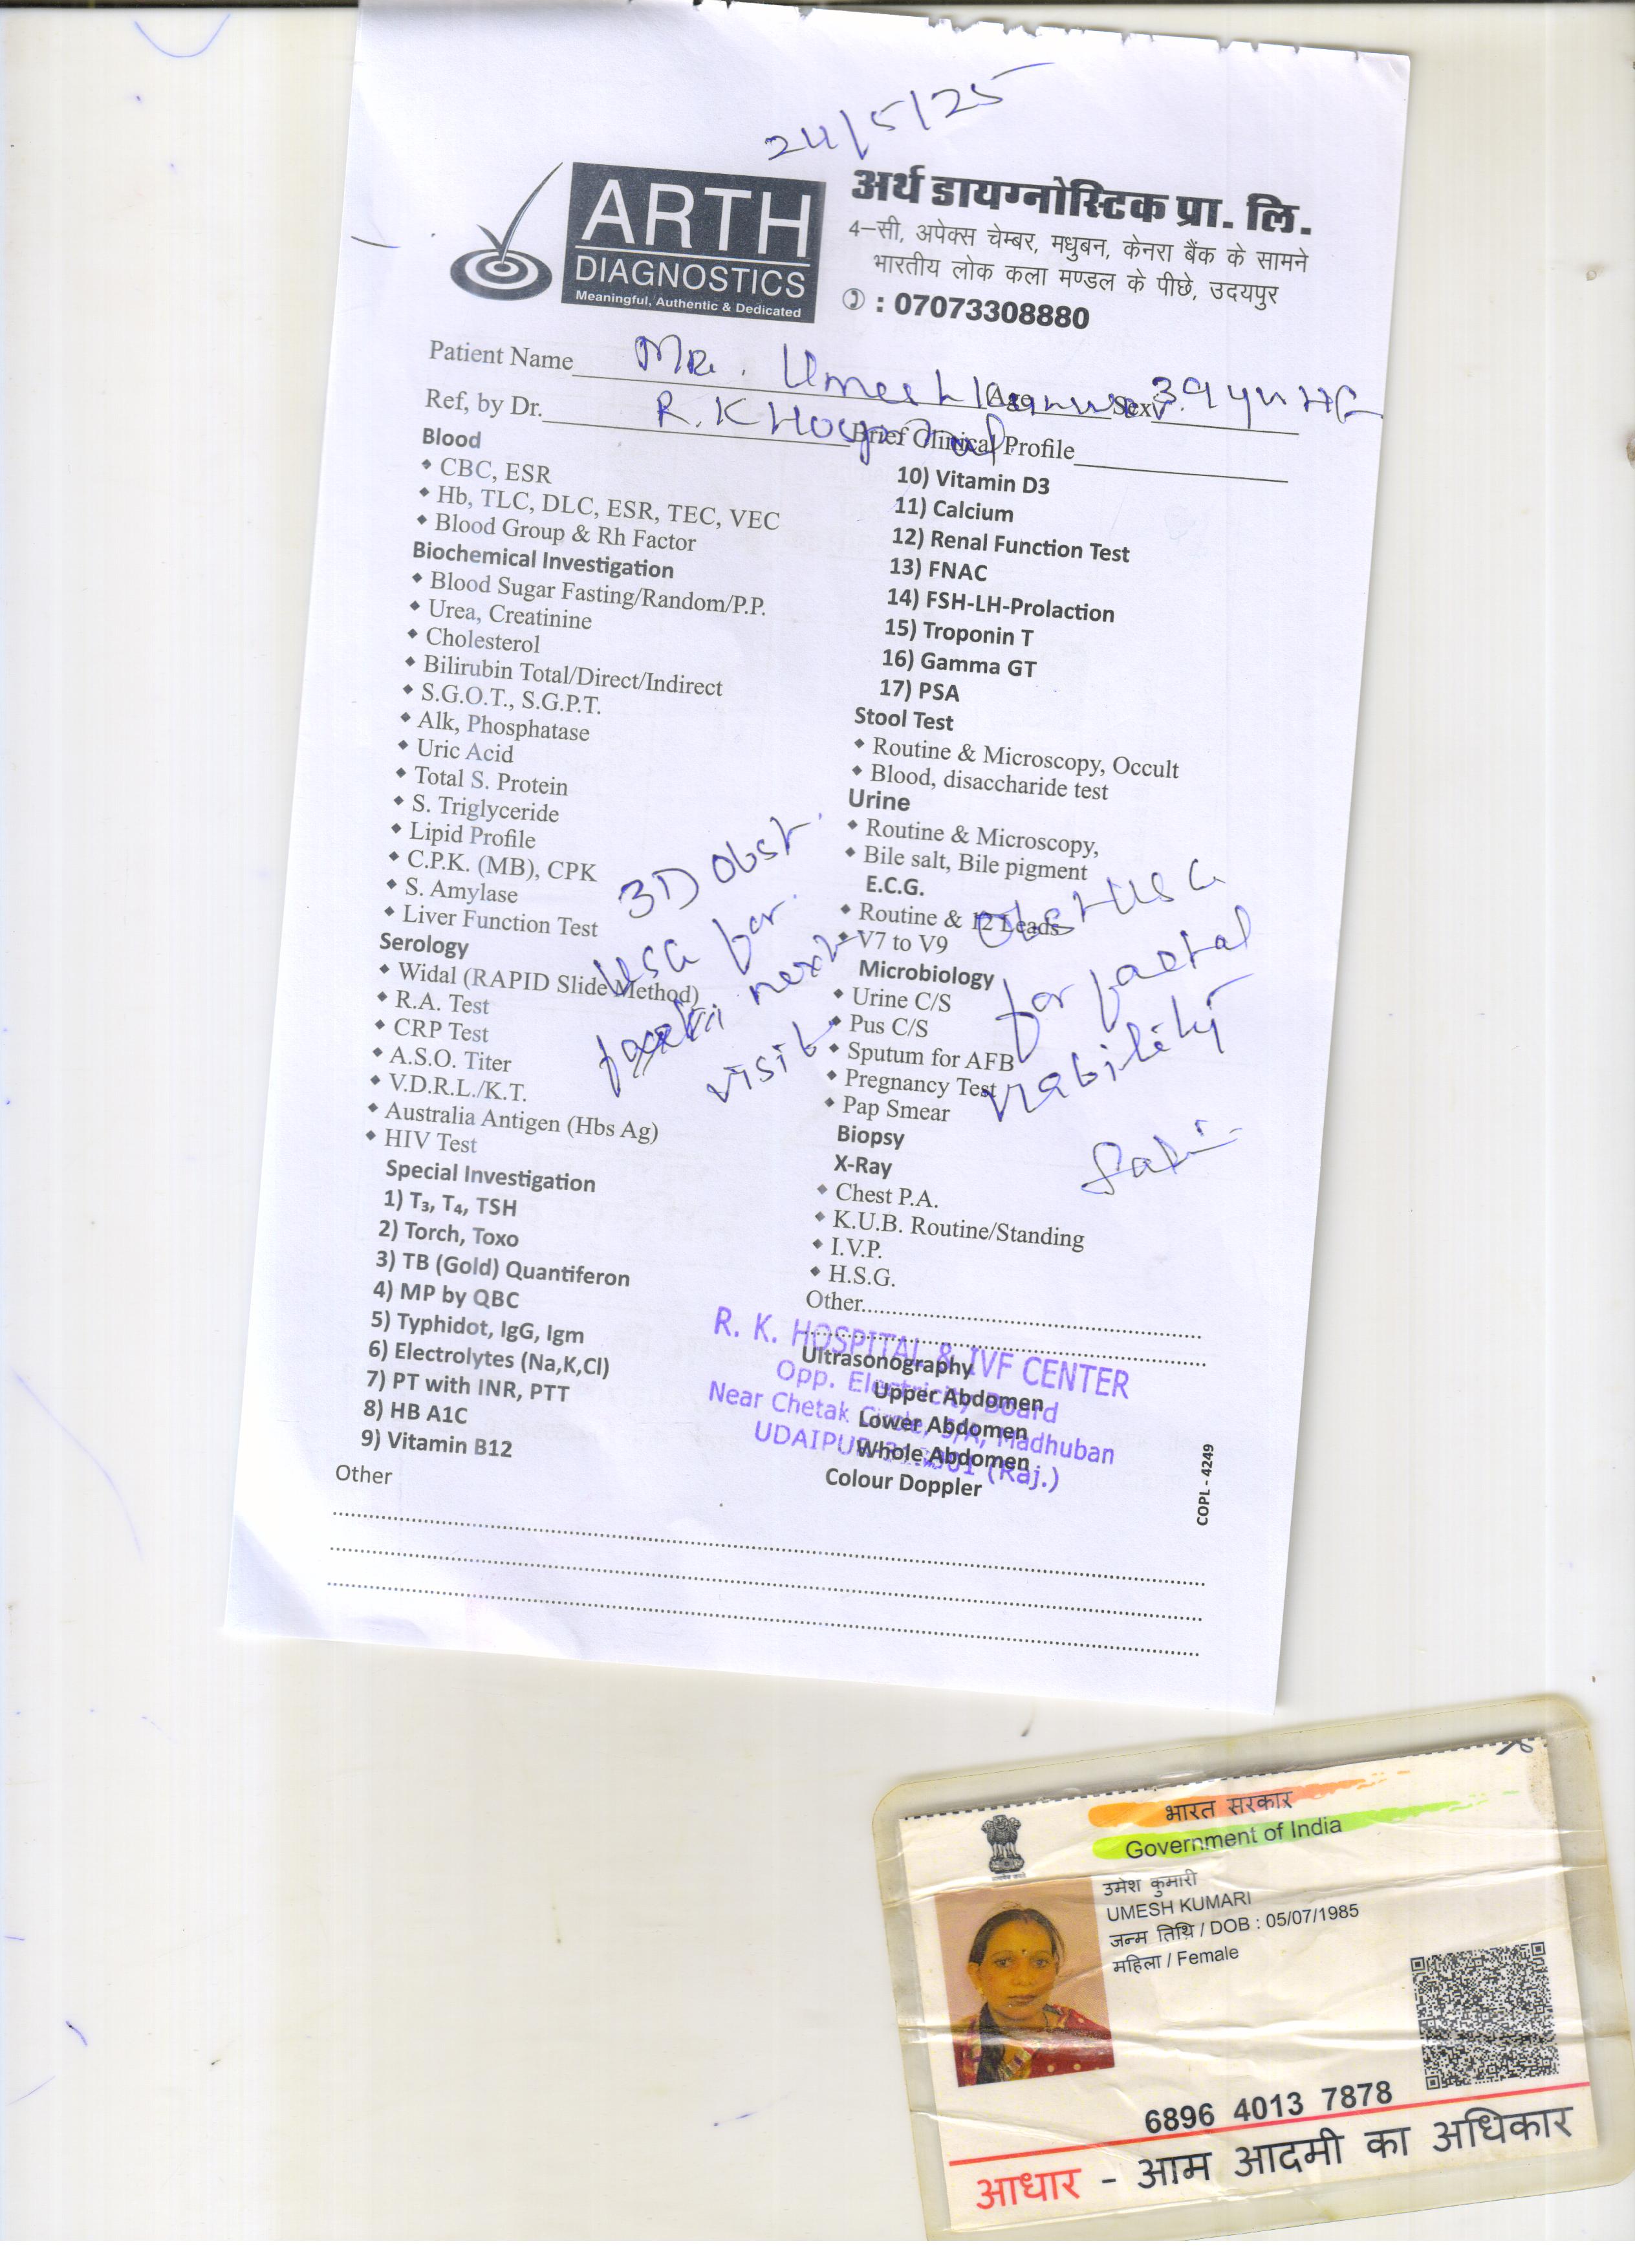 24/5/25
ARTH
DIAGNOSTICS
Meaningful, Authentic & Dedicated
अर्थ डायग्नोस्टिक प्रा. लि.
4–सी, अपेक्स चेम्बर, मधुबन, केनरा बैंक के सामने
भारतीय लोक कला मण्डल के पीछे, उदयपुर
: 07073308880
Patient Name Mr. Umesh Age Sex 39
Ref, by Dr. R.K Hospital Brief Clinical Profile
Blood
CBC, ESR
Hb, TLC, DLC, ESR, TEC, VEC
Blood Group & Rh Factor
Biochemical Investigation
Blood Sugar Fasting/Random/P.P.
Urea, Creatinine
Cholesterol
Bilirubin Total/Direct/Indirect
S.G.O.T., S.G.P.T.
Alk, Phosphatase
Uric Acid
Total S. Protein
S. Triglyceride
Lipid Profile
C.P.K. (MB), CPK
S. Amylase
Liver Function Test
Serology
Widal (RAPID Slide Method)
R.A. Test
CRP Test
A.S.O. Titer
V.D.R.L./K.T.
Australia Antigen (Hbs Ag)
HIV Test
Special Investigation
1) T₃, T₄, TSH
2) Torch, Toxo
3) TB (Gold) Quantiferon
4) MP by QBC
5) Typhidot, IgG, Igm
6) Electrolytes (Na,K,Cl)
7) PT with INR, PTT
8) HB A1C
9) Vitamin B12
Other
3D Obst.
USG for
next
visit
10) Vitamin D3
11) Calcium
12) Renal Function Test
13) FNAC
14) FSH-LH-Prolaction
15) Troponin T
16) Gamma GT
17) PSA
Stool Test
Routine & Microscopy, Occult
Blood, disaccharide test
Urine
Routine & Microscopy,
Bile salt, Bile pigment
E.C.G.
Routine & 12 Leads
V7 to V9
Microbiology
Urine C/S
Pus C/S
Sputum for AFB
Pregnancy Test
Pap Smear
Biopsy
X-Ray
Chest P.A.
K.U.B. Routine/Standing
I.V.P.
H.S.G.
Other
Obst USG
for faetal
viability
Ultrasonography
Upper Abdomen
Lower Abdomen
Whole Abdomen
Colour Doppler
R. K. HOSPITAL & IVF CENTER
Opp. Electricity Board
Near Chetak Circle, 5/A, Madhuban
UDAIPUR (Raj.)
COPL - 4249
भारत सरकार
Government of India
उमेश कुमारी
UMESH KUMARI
जन्म तिथि / DOB : 05/07/1985
महिला / Female
6896 4013 7878
आधार - आम आदमी का अधिकार